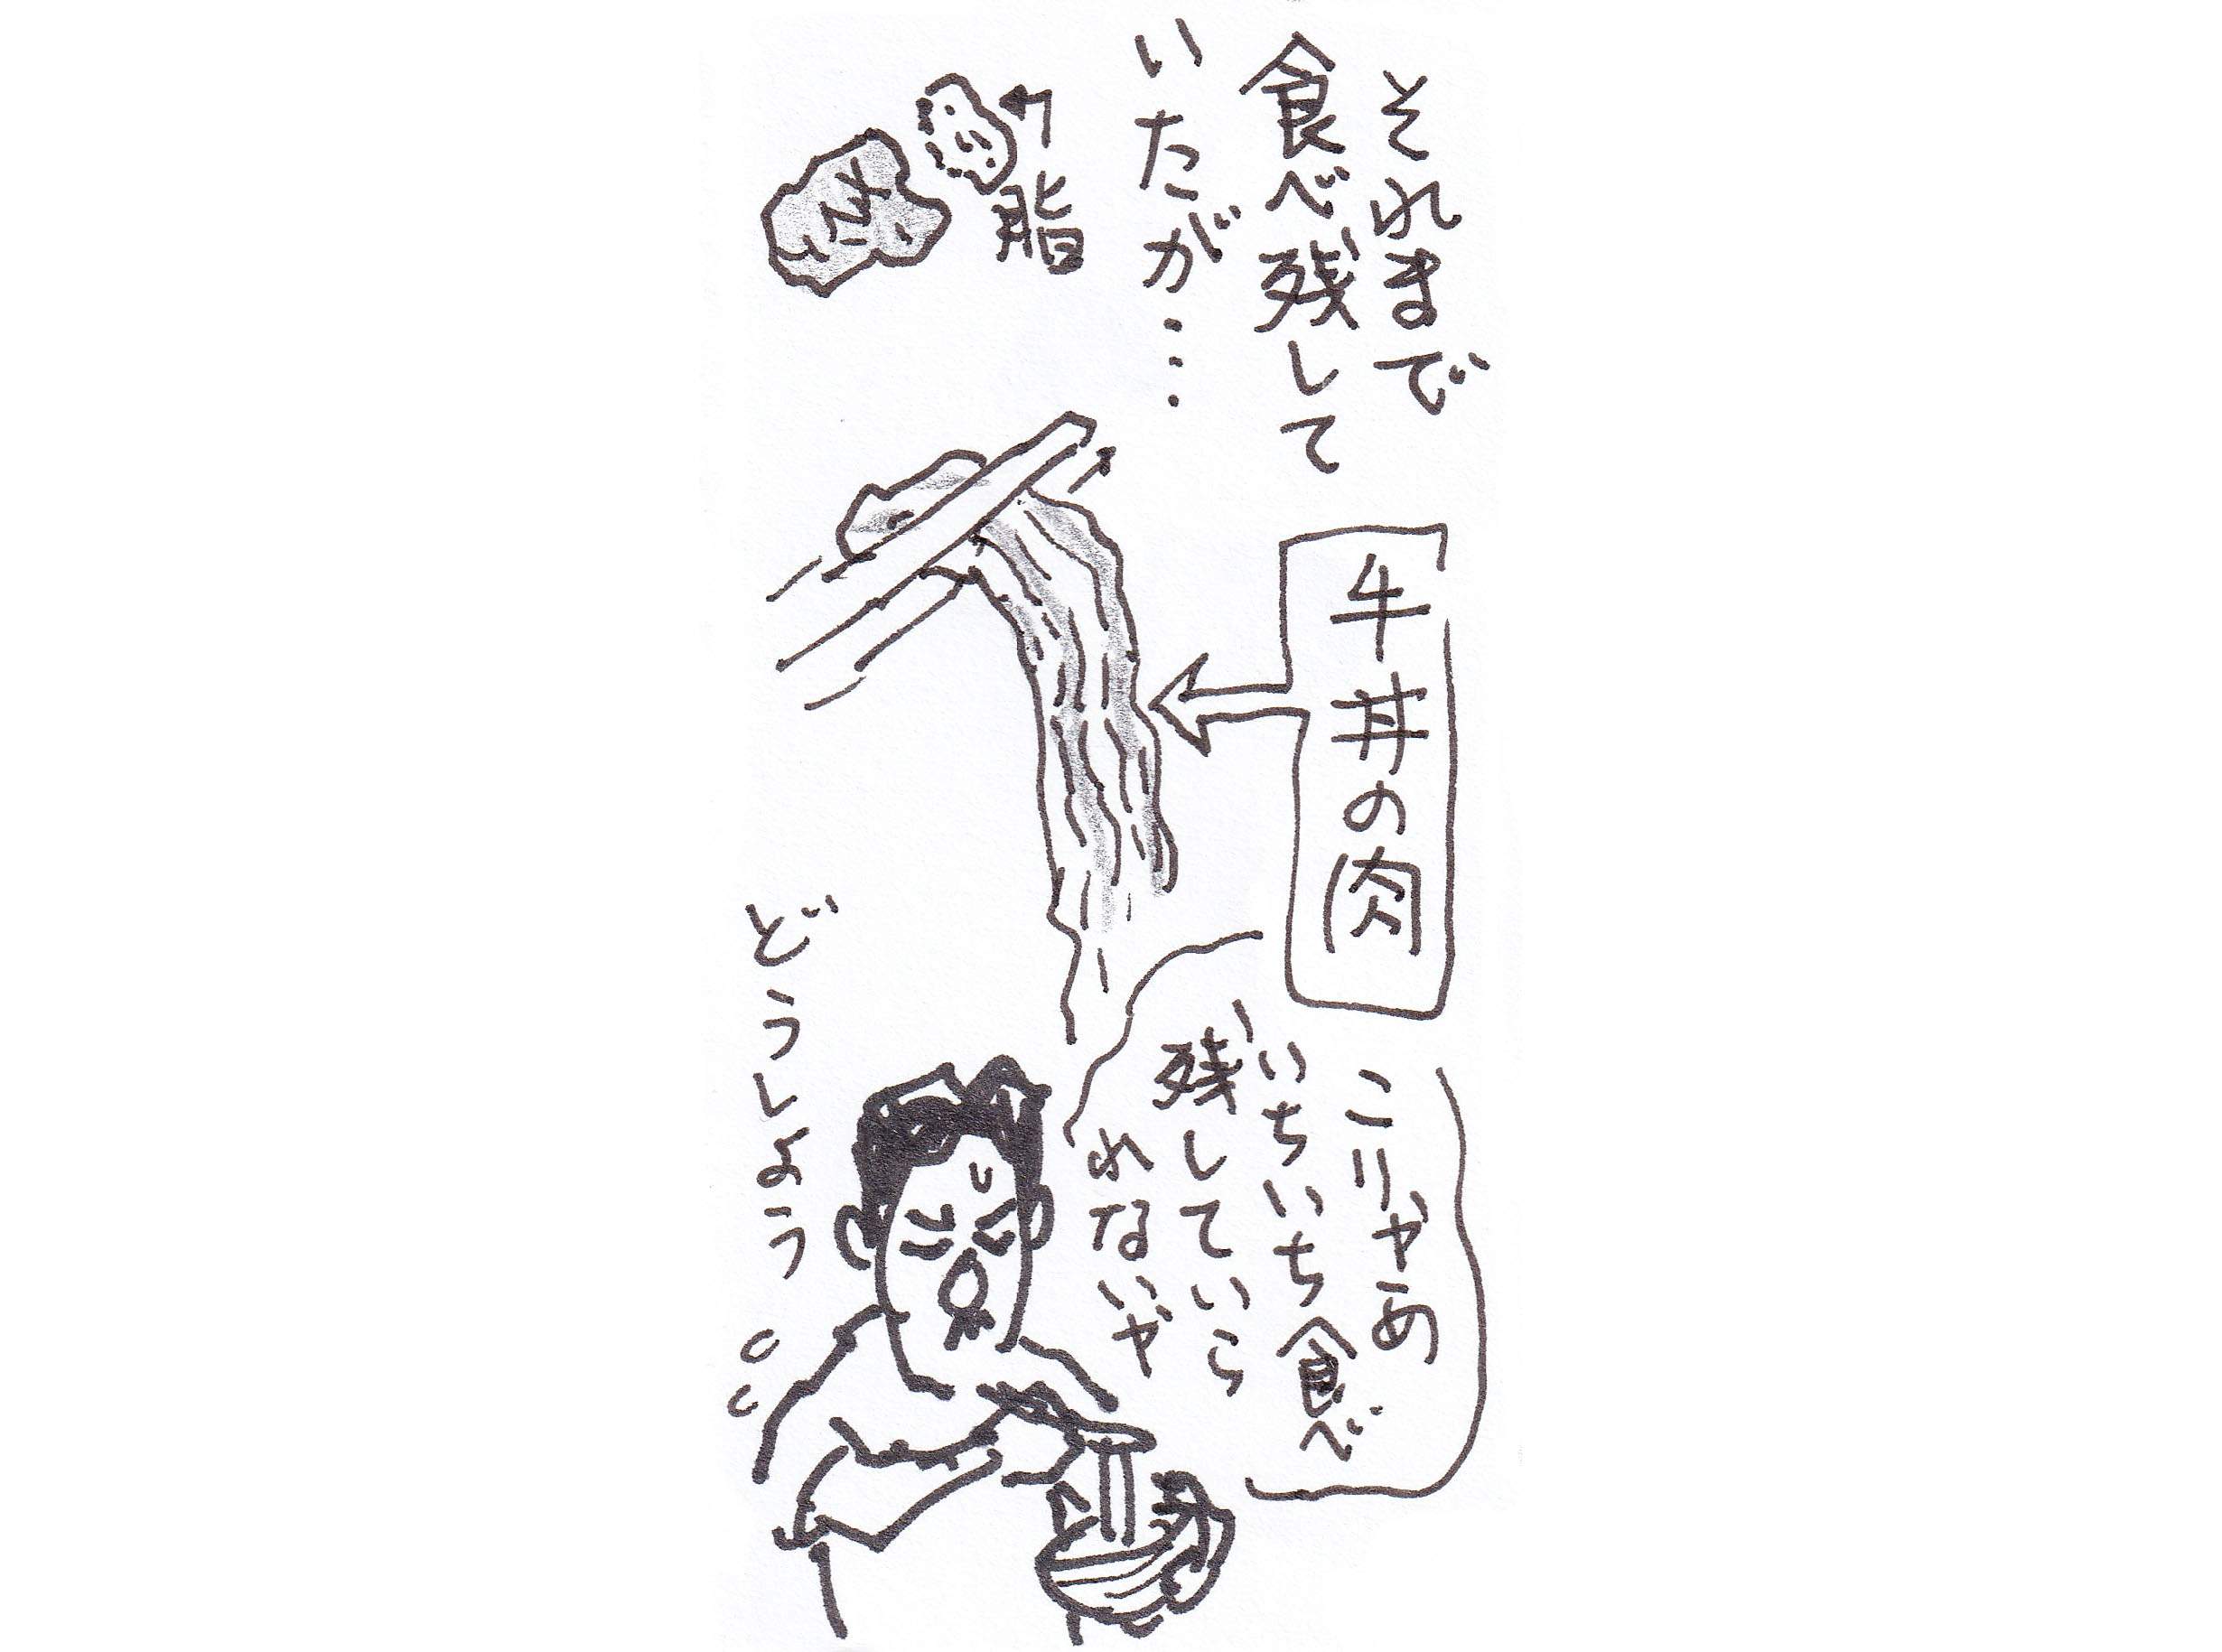 それまで
食べ残して
いたが…
脂
牛丼の肉
こりゃあ
いちいち食べ
残していら
れないや
どうしよう